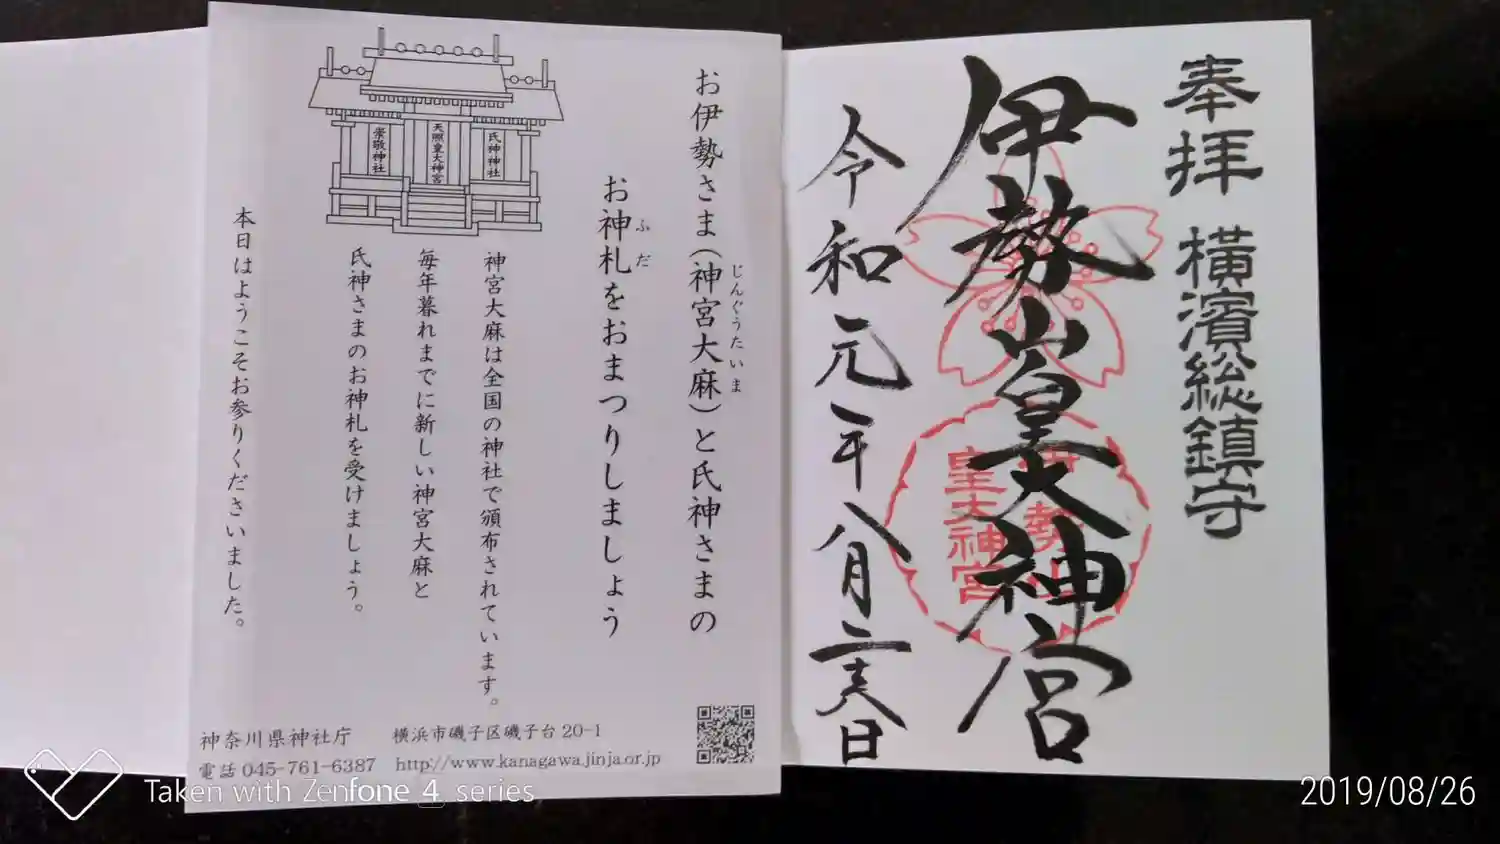 奉拝 横濱総鎮守
伊勢山皇大神宮
伊勢山
皇大神宮
令和元年八月二十六日
お伊勢さま(神宮大麻)と氏神さまの
じんぐうたいま
お神札をおまつりしましょう
ふだ
氏神神社
天照皇大神宮
崇敬神社
神宮大麻は全国の神社で頒布されています。
毎年暮れまでに新しい神宮大麻と
氏神さまのお神札を受けましょう。
本日はようこそお参りくださいました。
神奈川県神社庁 横浜市磯子区磯子台20-1
電話 045-761-6387 http://www.kanagawa.jinja.or.jp
Taken with Zenfone 4 series
2019/08/26